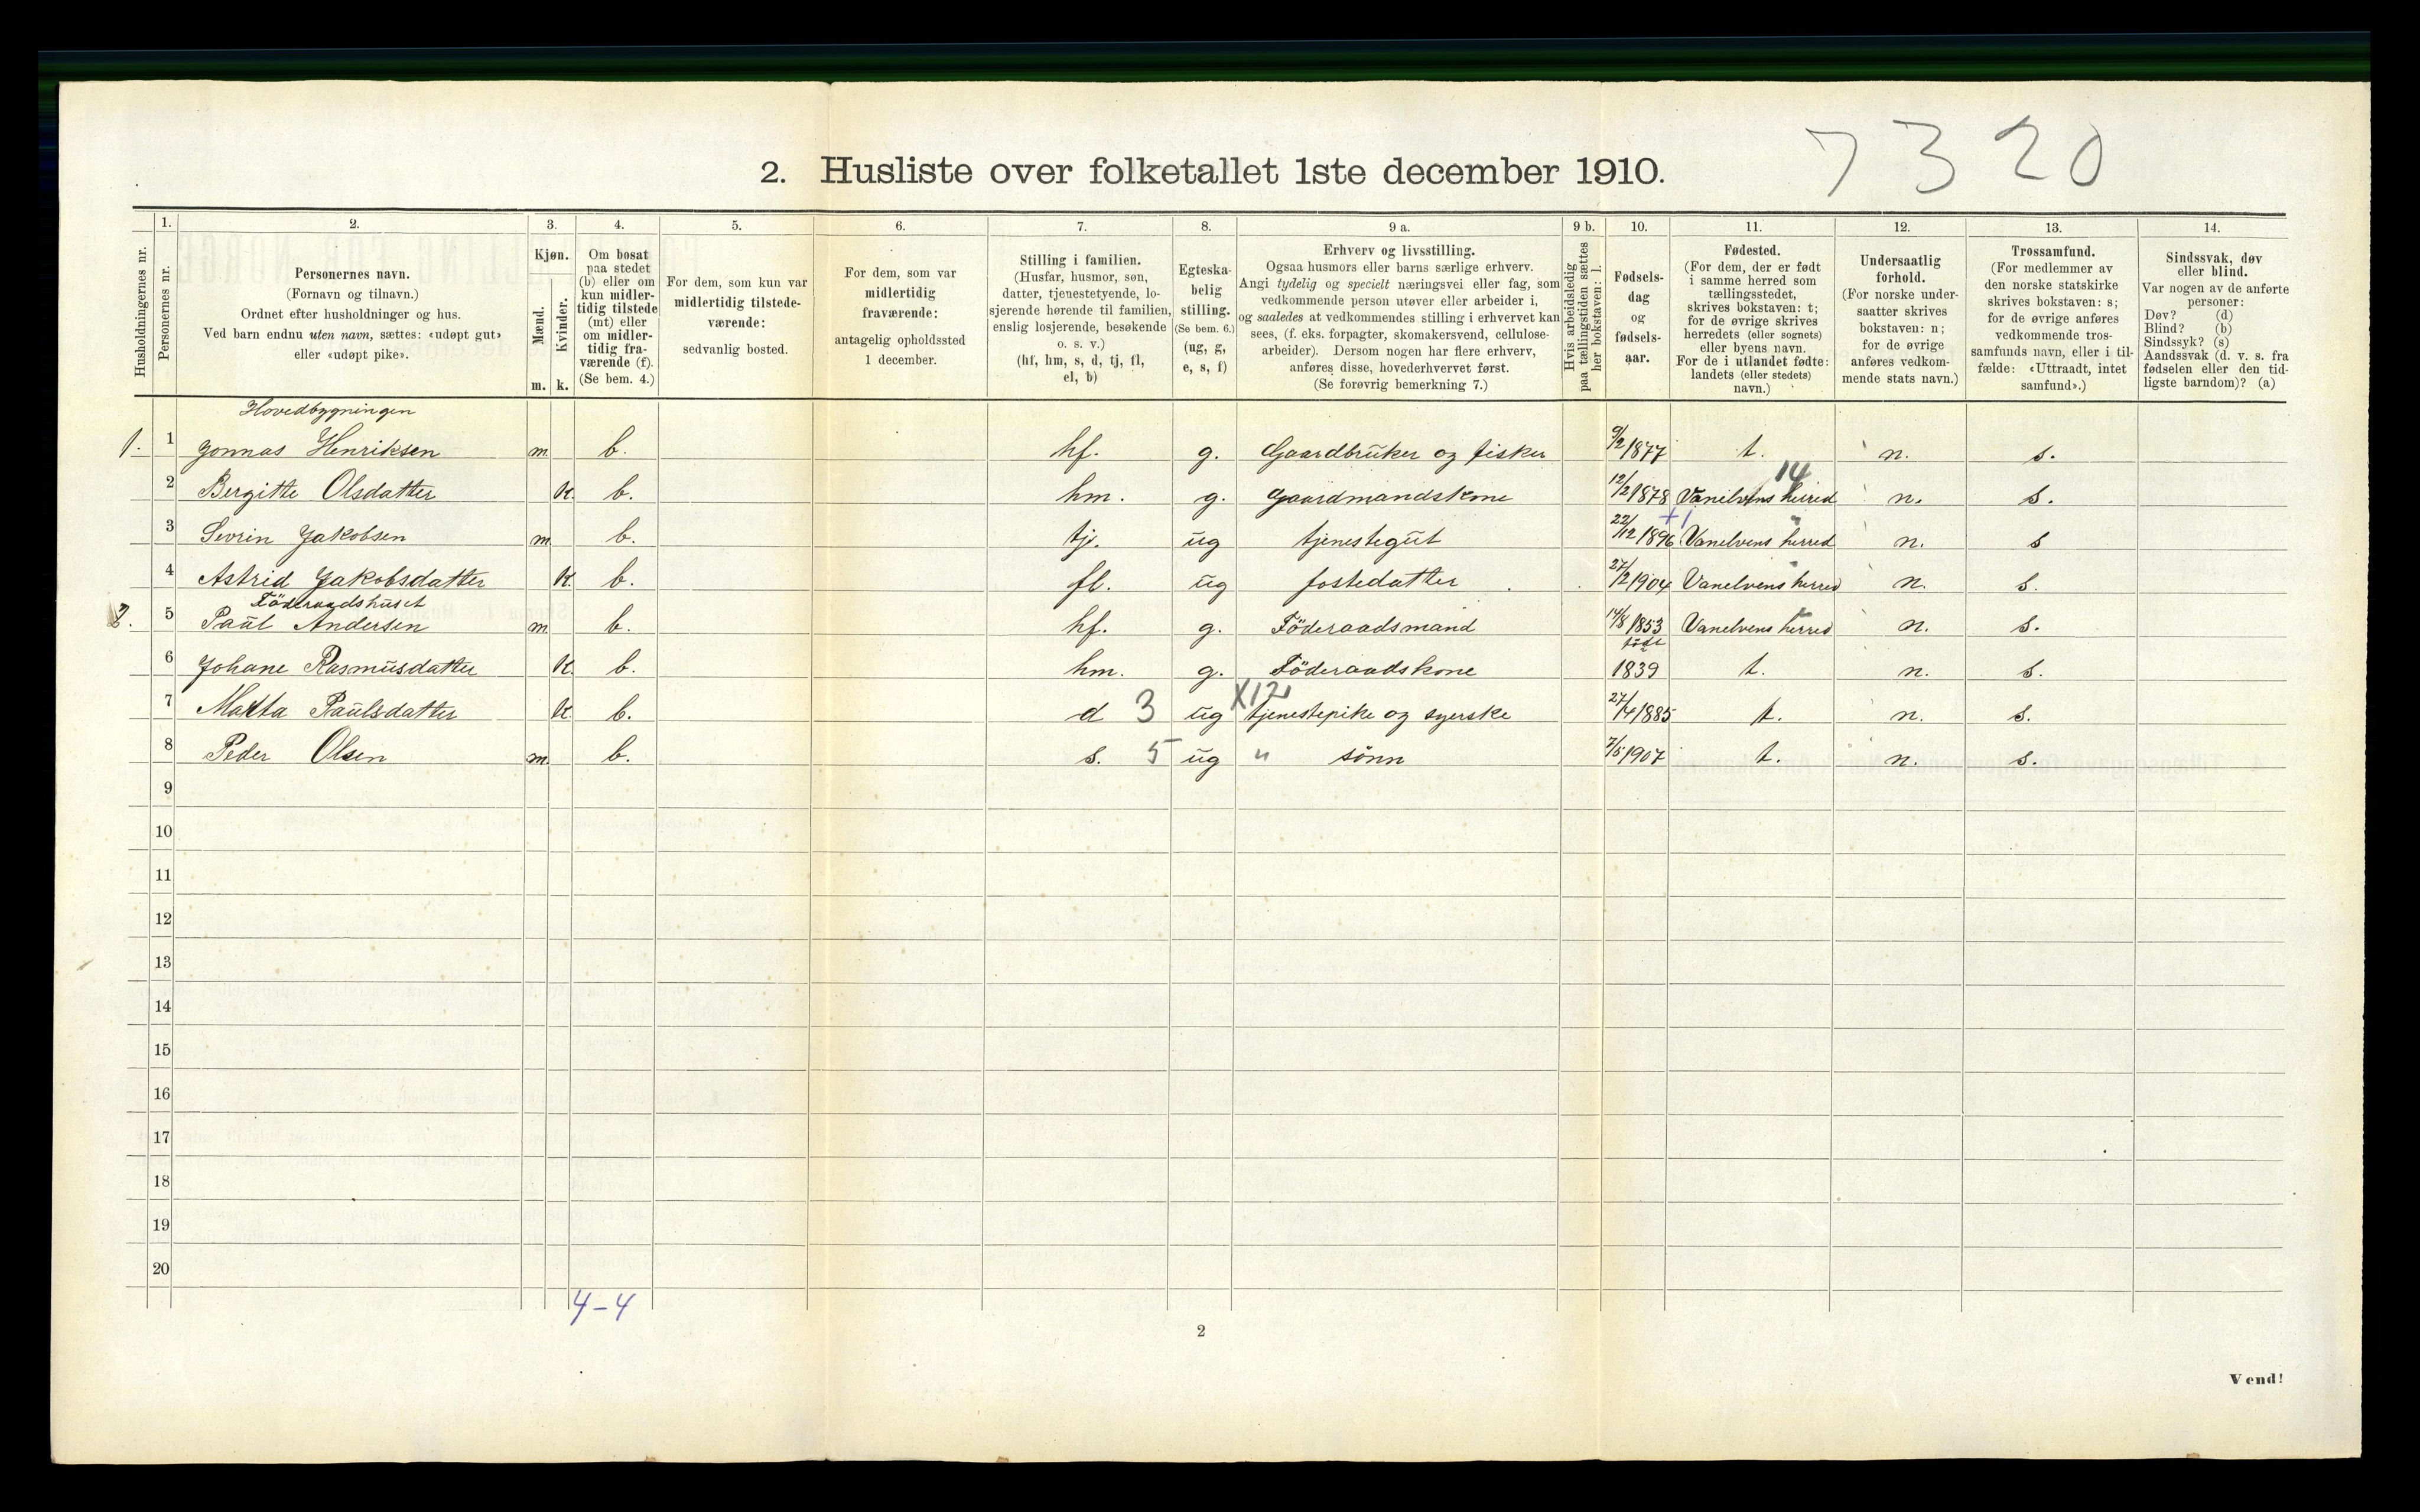 7320
2. Husliste over folketallet 1ste december 1910.
Husholdningernes nr.
1. Personernes nr.
2. Personernes navn.
(Fornavn og tilnavn.)
Ordnet efter husholdninger og hus.
Ved barn endnu uten navn, sættes: «udøpt gut»
eller «udøpt pike».
3. Kjøn.
Mænd. m.
Kvinder. k.
4. Om bosat
paa stedet
(b) eller om
kun midler-
tidig tilstede
(mt) eller
om midler-
tidig fra-
værende (f).
(Se bem. 4.)
5. For dem, som kun var
midlertidig tilstede-
værende:
sedvanlig bosted.
6. For dem, som var
midlertidig
fraværende:
antagelig opholdssted
1 december.
7. Stilling i familien.
(Husfar, husmor, søn,
datter, tjenestetyende, lo-
sjerende hørende til familien,
enslig losjerende, besøkende
o. s. v.)
(hf, hm, s, d, tj, fl,
el, b)
8. Egteska-
belig
stilling.
(Se bem. 6.)
(ug, g,
e, s, f)
9 a. Erhverv og livsstilling.
Ogsaa husmors eller barns særlige erhverv.
Angi tydelig og specielt næringsvei eller fag, som
vedkommende person utøver eller arbeider i,
og saaledes at vedkommendes stilling i erhvervet kan
sees, (f. eks. forpagter, skomakersvend, cellulose-
arbeider). Dersom nogen har flere erhverv,
anføres disse, hovederhvervet først.
(Se forøvrig bemerkning 7.)
9 b. Hvis arbeidsledig
paa tællingstiden sættes
her bokstaven: l.
10. Fødsels-
dag
og
fødsels-
aar.
11. Fødested.
(For dem, der er født
i samme herred som
tællingsstedet,
skrives bokstaven: t;
for de øvrige skrives
herredets (eller sognets)
eller byens navn.
For de i utlandet fødte:
landets (eller stedets)
navn.)
12. Undersaatlig
forhold.
(For norske under-
saatter skrives
bokstaven: n;
for de øvrige
anføres vedkom-
mende stats navn.)
13. Trossamfund.
(For medlemmer av
den norske statskirke
skrives bokstaven: s;
for de øvrige anføres
vedkommende tros-
samfunds navn, eller i til-
fælde: «Uttraadt, intet
samfund».)
14. Sindssvak, døv
eller blind.
Var nogen av de anførte
personer:
Døv? (d)
Blind? (b)
Sindssyk? (s)
Aandssvak (d. v. s. fra
fødselen eller den tid-
ligste barndom)? (a)
Hovedbygningen
1. 1 Jonnas Henriksen m b. hf. g. Gaardbruker og fisker 9/2 1877 t. n. s.
14
2 Bergitte Olsdatter K. b. hm. g. Gaardmandskone 12/2 1878 Vanelvens herred n. s.
+1
3 Sevrin Jakobsen m. b. tj. ug tjenestegut 22/12 1896 Vanelvens herred n. s
4 Astrid Jakobsdatter K. b. fl. ug fostedatter 27/2 1904 Vanelvens herred n. s.
Föderaadshuset
2. 5 Paul Andersen m. b. hf. g. Föderaadsmand 14/8 1853 Vanelvens herred n. s.
6 Johane Rasmusdatter K. b. hm. g. Föderaadskone 1839 t. n. s.
X12
7 Marta Paulsdatter K. b. d 3 ug tjenestepike og syerske 27/4 1885 t. n. s.
8 Peder Olsen m. b. s. 5 ug " sönn 7/5 1907 t. n. s.
9
10
11
12
13
14
15
16
17
18
19
20
4-4
2
Vend!